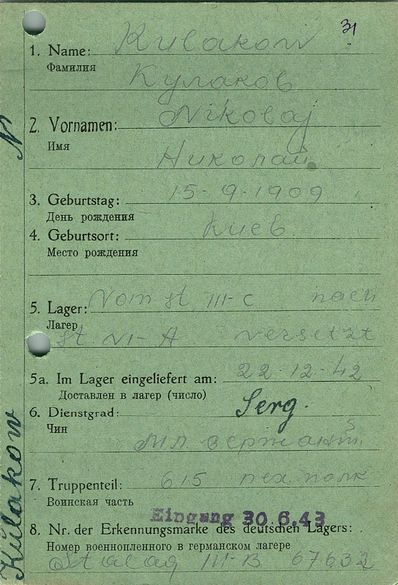 31
1. Name: Kulakow
Фамилия
Кулаков
2. Vornamen: Nikolaj
Имя
Николай
3. Geburtstag: 15-9-1909
День рождения
4. Geburtsort: Киев
Место рождения
5. Lager: Vom st III-C nach
Лагер
st. VI-A versetzt
5a. Im Lager eingeliefert am: 22-12-42
Доставлен в лагер (число)
6. Dienstgrad: Serg.
Чин
мл сержант
7. Truppenteil: 615 пех полк
Воинская часть
Eingang 30.6.43
8. Nr. der Erkennungsmarke des deutschen Lagers:
Номер военнопленного в германском лагере
Stalag III-B 67632
Kulakow N